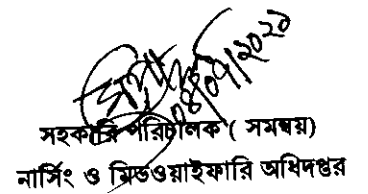 ০৪/০৭/২০২১
সহকারি পরিচালক ( সমন্বয়)
নার্সিং ও মিডওয়াইফারি অধিদপ্তর